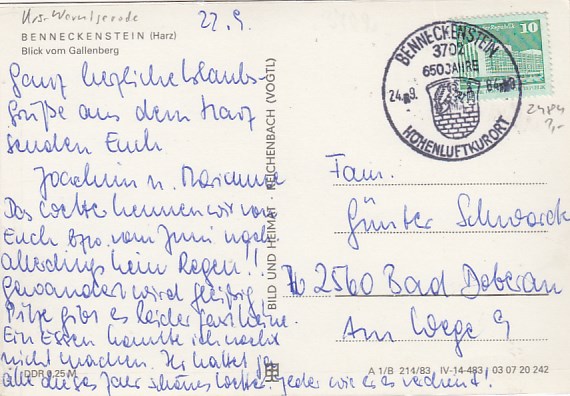 Krs. Wernigerode
22.9.
BENNECKENSTEIN (Harz)
Blick vom Gallenberg
Ganz herzliche Urlaubs-
grüße aus dem Harz
senden Euch
Joachim u. Marianne
Das Wetter kennen wir von
Euch bzw. vom Juni nach
allerdings kein Regen!!
Gewandert wird fleißig
Pilze gibt es leider gar keine.
Ein Essen konnte ich noch
nicht machen. Ihr hattet ja
alle dieses Jahr schönes Wetter. Jeder wie er es verdient!
DDR 0,25 M
BILD UND HEIMAT · REICHENBACH (VOGTL)
BENNECKENSTEIN
3702
650 JAHRE
24.-9. 84
HÖHENLUFTKURORT
10
2484
Fam.
Günter Schwarck
2560 Bad Doberan
Am Wege 9
A 1/B 214/83 IV-14-483 03 07 20 242